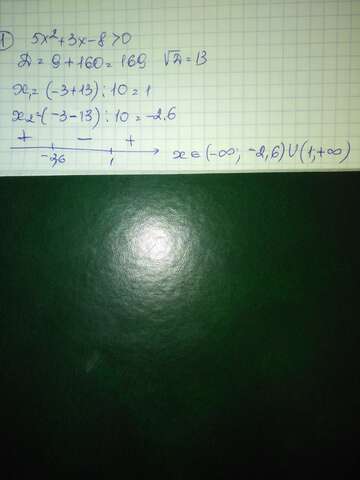 1 5x²+3x-8>0
D = 9+160=169 √D=13
x₁=(-3+13):10=1
x₂=(-3-13):10=-2,6
+ - +
-2,6 1 x∈(-∞; -2,6)∪(1;+∞)